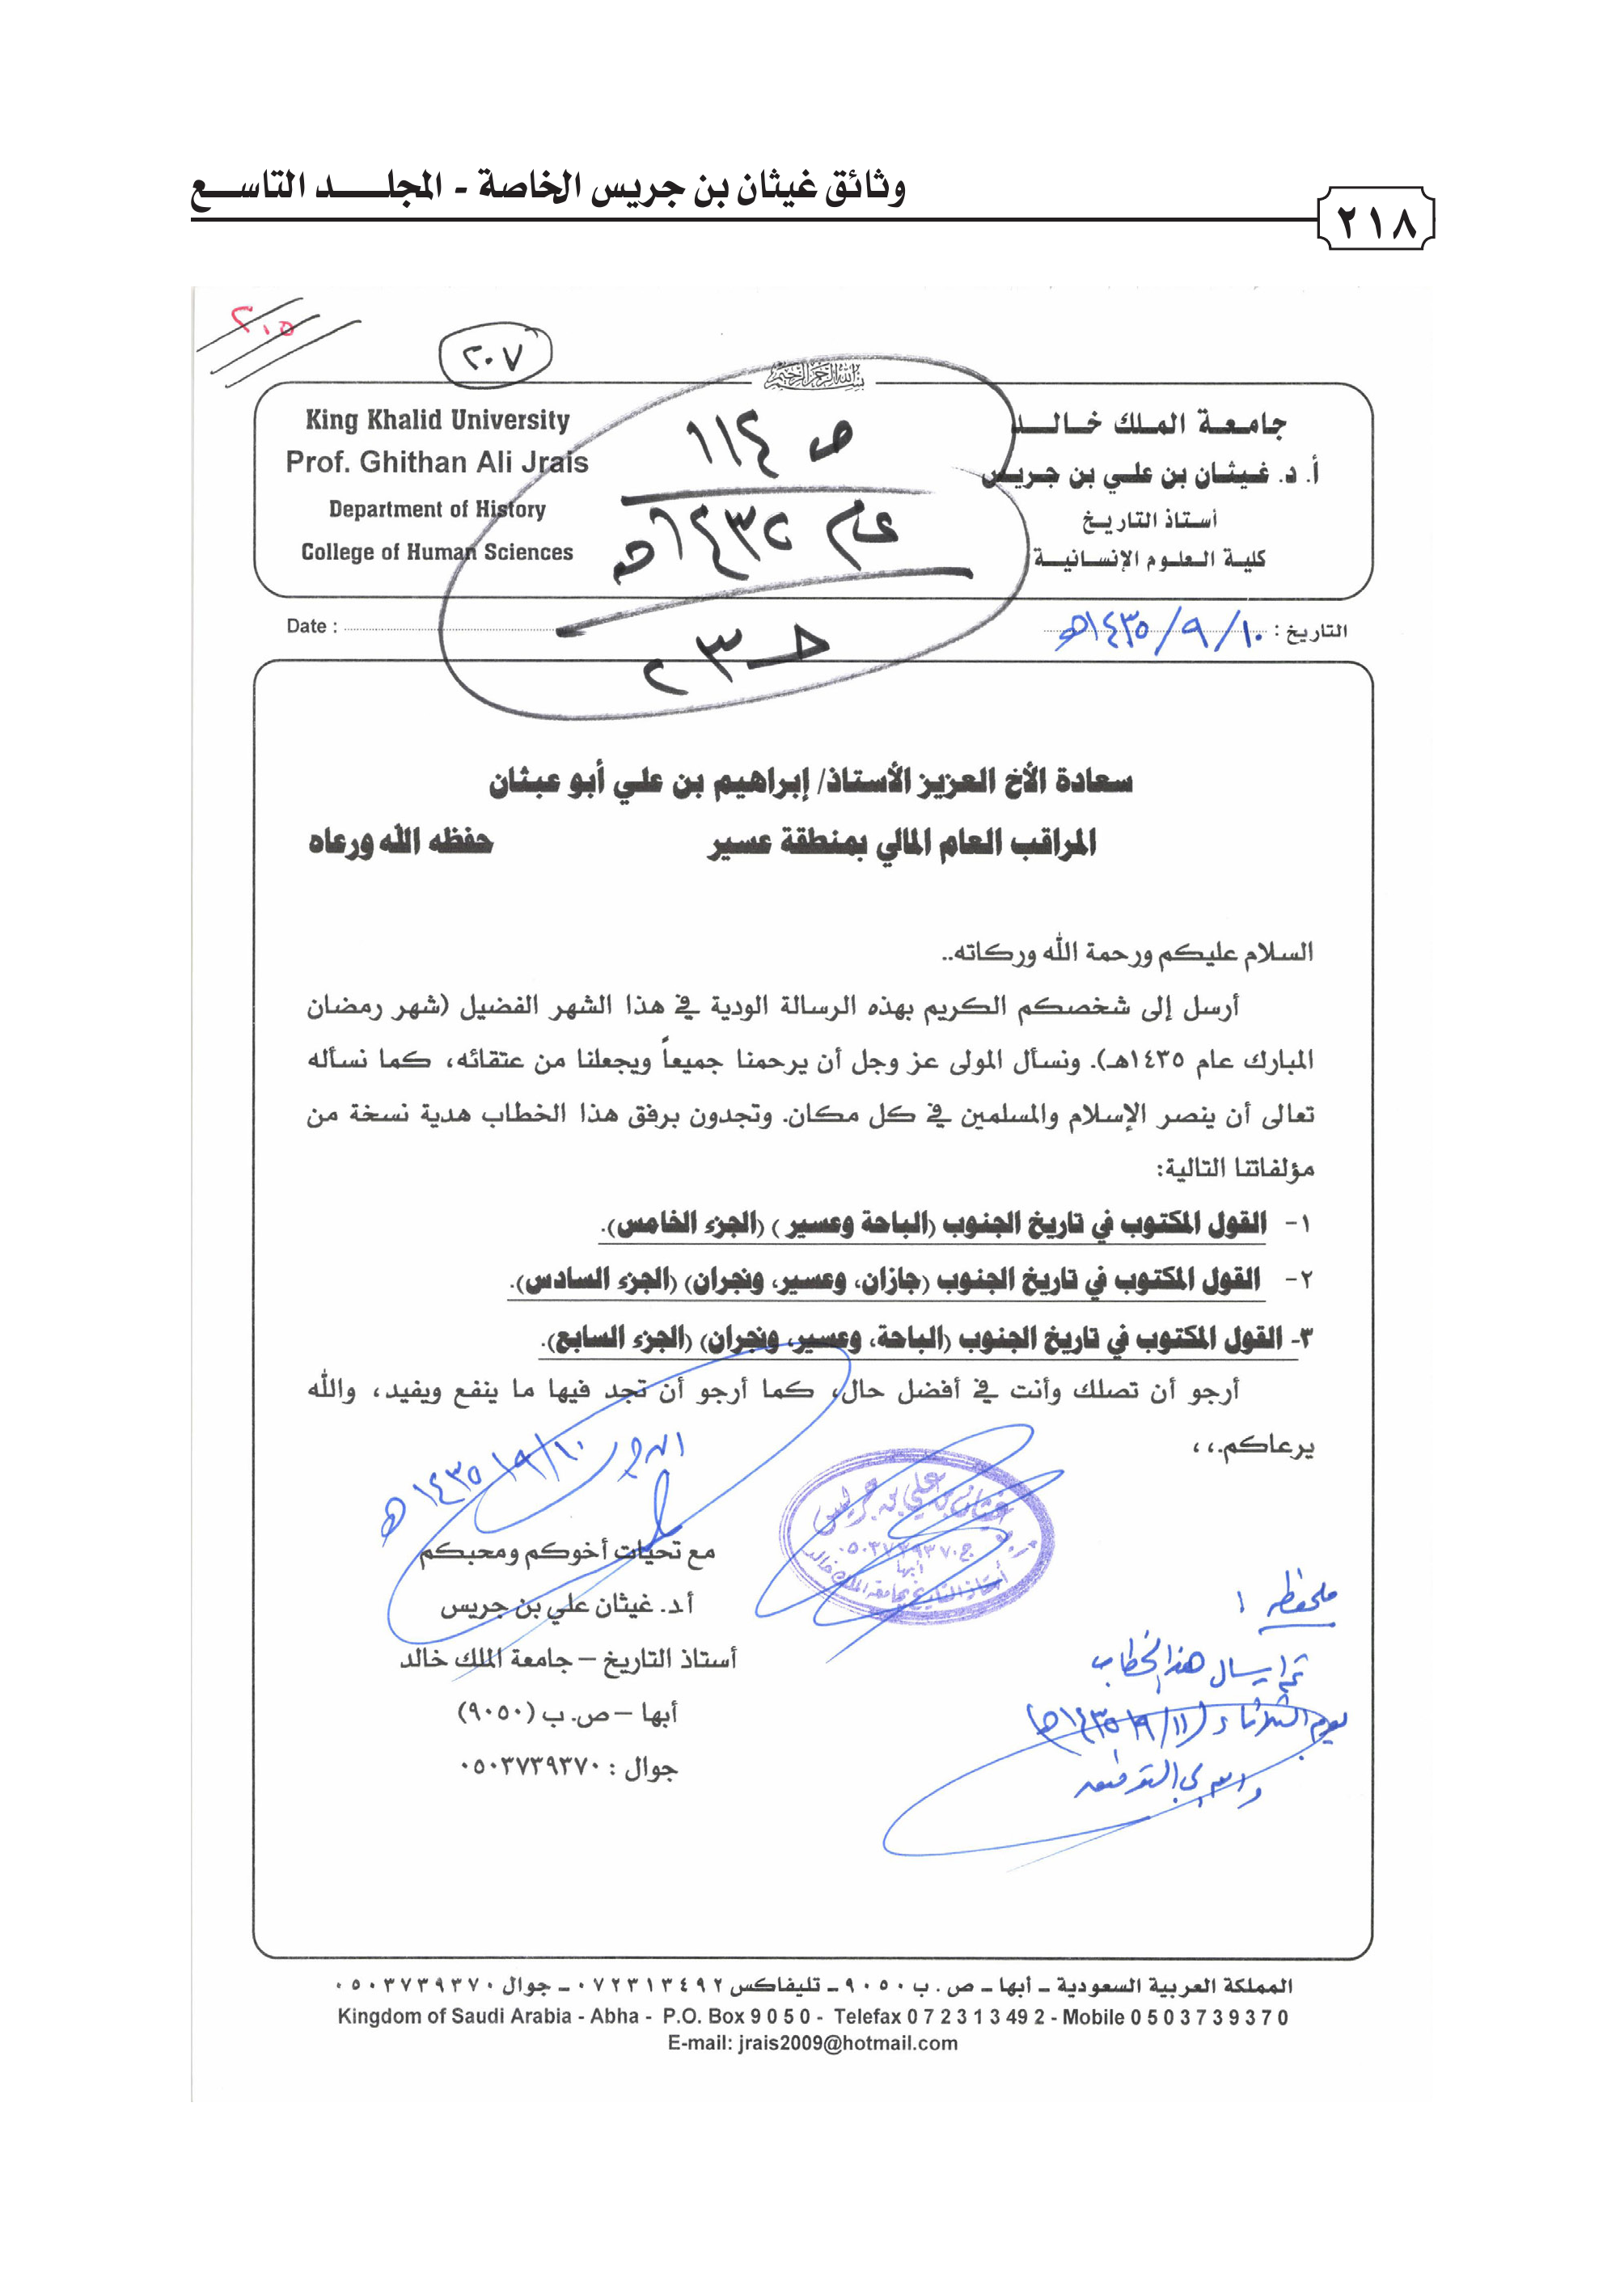 وثائق غيثان بن جريس الخاصة - المجلد التاسع
٢١٨
٢٠٥
٢٠٧
بسم الله الرحمن الرحيم
King Khalid University
Prof. Ghithan Ali Jrais
Department of History
College of Human Sciences
جامعة الملك خالد
أ. د. غيثان بن علي بن جريس
أستاذ التاريخ
كلية العلوم الإنسانية
ص ١١٤
عام ١٤٣٢هـ
حـ ٢٣
Date :
التاريخ : ١٠/٩/١٤٣٥هـ
سعادة الأخ العزيز الأستاذ/ إبراهيم بن علي أبو عبثان
المراقب العام المالي بمنطقة عسير حفظه الله ورعاه
السلام عليكم ورحمة الله وركاته..
أرسل إلى شخصكم الكريم بهذه الرسالة الودية في هذا الشهر الفضيل (شهر رمضان
المبارك عام ١٤٣٥هـ). ونسأل المولى عز وجل أن يرحمنا جميعاً ويجعلنا من عتقائه، كما نسأله
تعالى أن ينصر الإسلام والمسلمين في كل مكان. وتجدون برفق هذا الخطاب هدية نسخة من
مؤلفاتنا التالية:
١- القول المكتوب في تاريخ الجنوب (الباحة وعسير ) (الجزء الخامس).
٢- القول المكتوب في تاريخ الجنوب (جازان، وعسير، ونجران) (الجزء السادس).
٣- القول المكتوب في تاريخ الجنوب (الباحة، وعسير، ونجران) (الجزء السابع).
أرجو أن تصلك وأنت في أفضل حال، كما أرجو أن تجد فيها ما ينفع ويفيد، والله
يرعاكم.،،
١٠/٩/١٤٣٥هـ
غيثان بن علي بن جريس
ج ٠٥٠٣٧٣٩٣٧٠
أبها
أستاذ التاريخ بجامعة الملك خالد
مع تحيات أخوكم ومحبكم
أ.د. غيثان علي بن جريس
أستاذ التاريخ – جامعة الملك خالد
أبها – ص. ب (٩٠٥٠)
جوال : ٠٥٠٣٧٣٩٣٧٠
ملحفظه !
تم ارسال هذا الخطاب
يوم الثلاثاء (١١/٩/١٤٣٥هـ)
المملكة العربية السعودية – أبها – ص . ب ٩٠٥٠ – تليفاكس ٠٧٢٣١٣٤٩٢ – جوال ٠٥٠٣٧٣٩٣٧٠
Kingdom of Saudi Arabia - Abha - P.O. Box 9 0 5 0 - Telefax 0 7 2 3 1 3 49 2 - Mobile 0 5 0 3 7 3 9 3 7 0
E-mail: jrais2009@hotmail.com